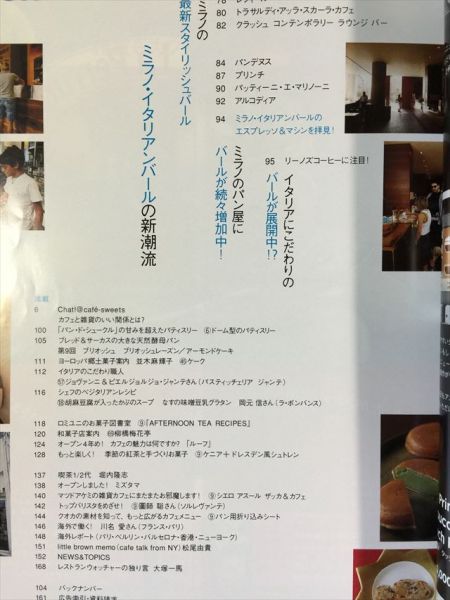 80 トラサルディ・アッラ・スカーラ・カフェ
82 クラッシュ コンテンポラリー ラウンジ バー
84 パンデヌス
87 プリンチ
90 パッティーニ・エ・マリノーニ
92 アルコディア
94 ミラノ・イタリアンバールの
エスプレッソ&マシンを拝見!
95 リーノズコーヒーに注目!
イタリアにこだわりの
バールが展開中!?
ミラノのパン屋に
バールが続々増加中!
ミラノの
最新スタイリッシュバール
ミラノ・イタリアンバールの新潮流
連載
6 Chat!@café-sweets
カフェと雑貨のいい関係とは?
100 「パン・ド・シュークル」の甘みを超えたパティスリー ⑥ドーム型のパティスリー
105 ブレッド&サーカスの大きな天然酵母パン
第9回 ブリオッシュ ブリオッシュレーズン/アーモンドケーキ
111 ヨーロッパ郷土菓子案内 並木麻輝子 ㊺ケーク
112 イタリアのこだわり職人
�57ジョヴァンニ&ピエルジョルジョ・ジャンテさん(パスティッチェリア ジャンテ)
116 シェフのベジタリアンレシピ
⑱胡麻豆腐が入ったかぶのスープ なすの味噌豆乳グラタン 岡元 信さん(ラ・ボンバンス)
118 ロミユニのお菓子図書室 ⑨「AFTERNOON TEA RECIPES」
120 和菓子店案内 柳橋梅花亭
124 オープン4年め! カフェの魅力は何ですか? 「ルーフ」
128 もっと楽しく! 季節の紅茶と手づくりお菓子 ⑨ケニア+ドレスデン風シュトレン
137 喫茶1/2代 堀内隆志
138 オープンしました! ミズタマ
140 マッドアケミの雑貨カフェにまたまたお邪魔します! ⑨シエロ アスール ザッカ&カフェ
142 トップバリスタをめざせ! ③圖師 聡さん(ソルレヴァンテ)
144 クオカの素材を知って、もっと広がるカフェメニュー ⑨パン用折り込みシート
146 海外で働く! 川名 愛さん(フランス・パリ)
148 海外レポート(パリ・ベルリン・バルセロナ・香港・ニューヨーク)
151 little brown memo(cafe talk from NY)松尾由貴
152 NEWS&TOPICS
168 レストランウォッチャーの独り言 大塚一馬
104 バックナンバー
161 広告索引・資料請求